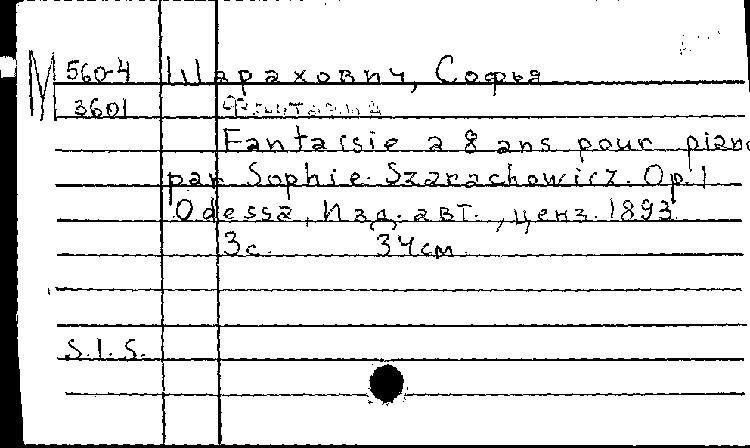 М 560-4 Шарахович, Софья
3601 Фантазия
Fantaisie a 8 ans pour piano
par Sophie Szarachowicz. Op. 1
Odessa, Изд. авт., ценз. 1893
3с. 34см
S.I.S.